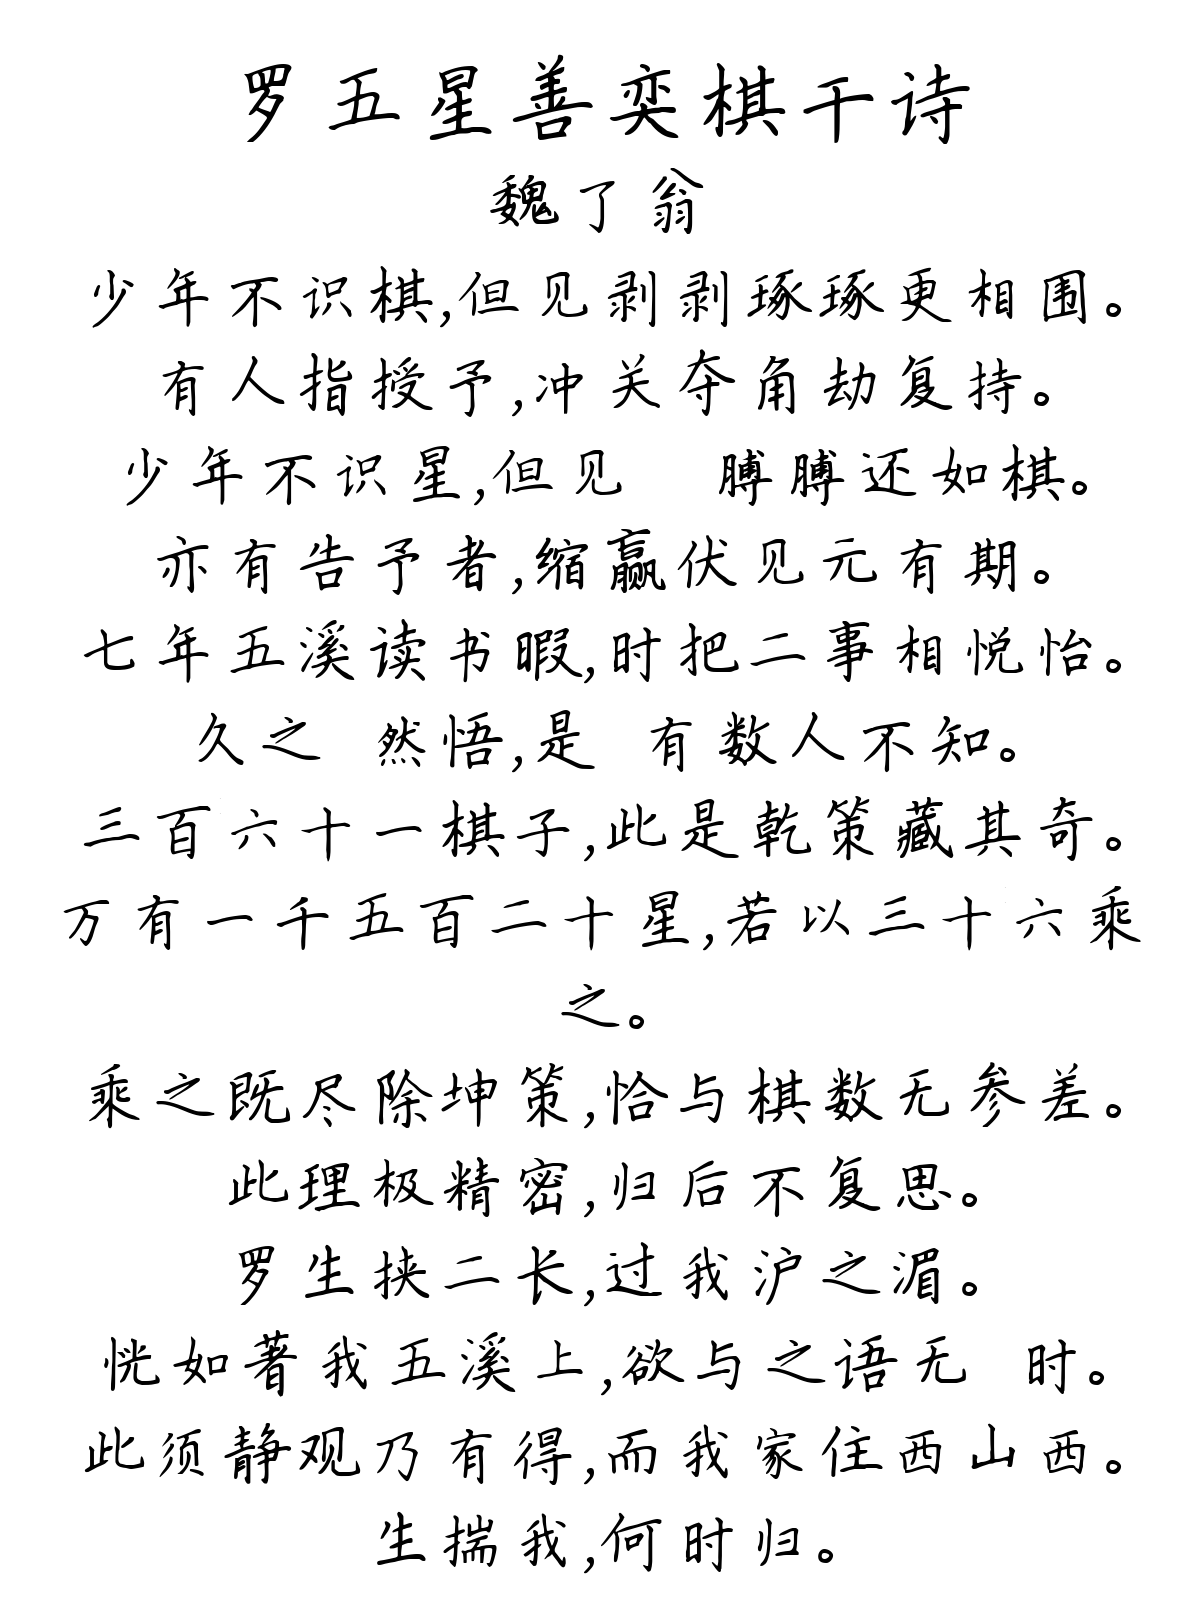 罗五星善奕棋干诗
魏了翁
少年不识棋,但见剥剥琢琢更相围。
有人指授予,冲关夺角劫复持。
少年不识星,但见 膊膊还如棋。
亦有告予者,缩赢伏见元有期。
七年五溪读书暇,时把二事相悦怡。
久之 然悟,是 有数人不知。
三百六十一棋子,此是乾策藏其奇。
万有一千五百二十星,若以三十六乘
之。
乘之既尽除坤策,恰与棋数无参差。
此理极精密,归后不复思。
罗生挟二长,过我沪之湄。
恍如著我五溪上,欲与之语无 时。
此须静观乃有得,而我家住西山西。
生揣我,何时归。